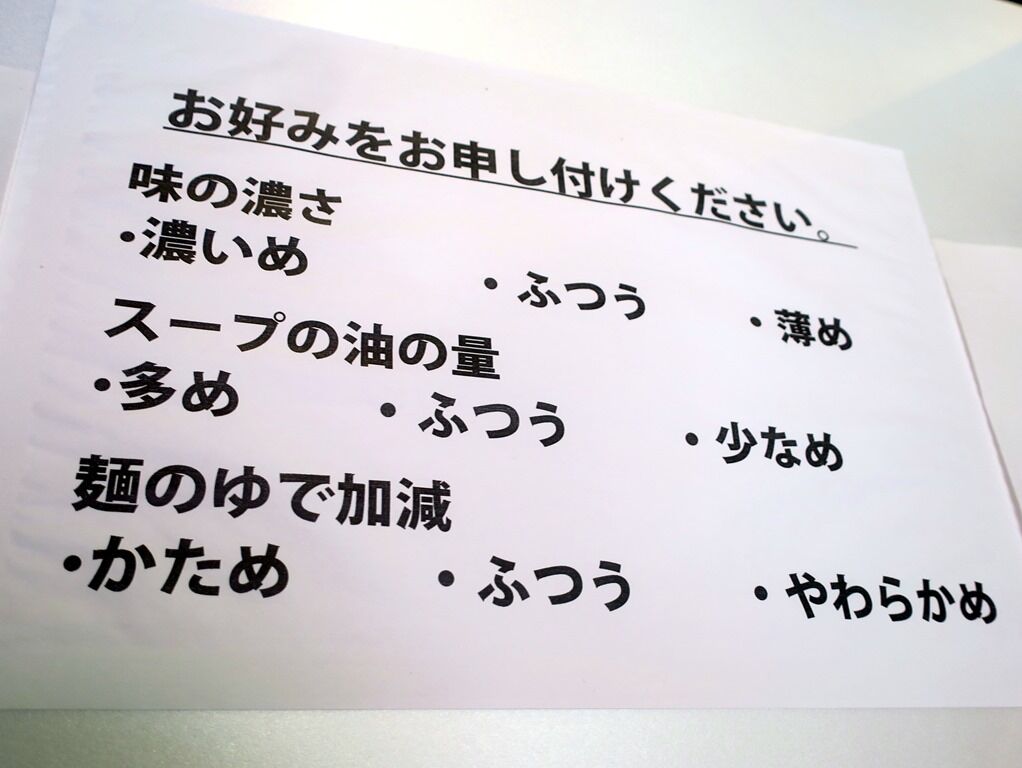 お好みをお申し付けください。
味の濃さ
・濃いめ ・ふつう ・薄め
スープの油の量
・多め ・ふつう ・少なめ
麺のゆで加減
・かため ・ふつう ・やわらかめ